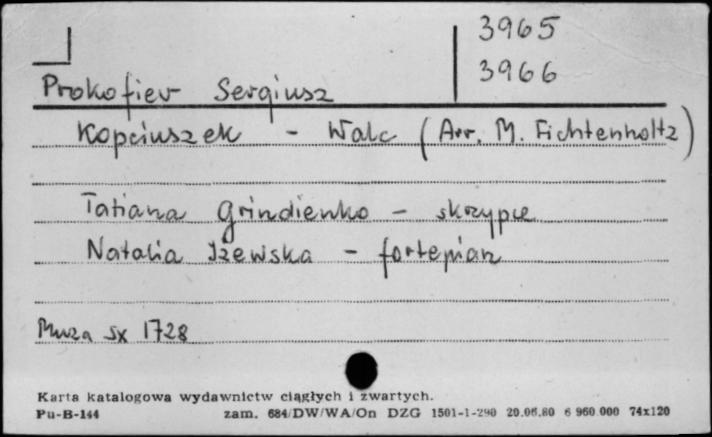 3965
3966
Prokofiev Sergiusz
Kopciuszek - Walc (Arr. M. Fichtenholtz)
Tatiana Grindienko - skrzypce
Natalia Iżewska - fortepian
Muza SX 1728
Karta katalogowa wydawnictw ciągłych i zwartych.
Pu-B-144 zam. 684/DW/WA/On DZG 1501-1-290 20.06.80 6 960 000 74x120